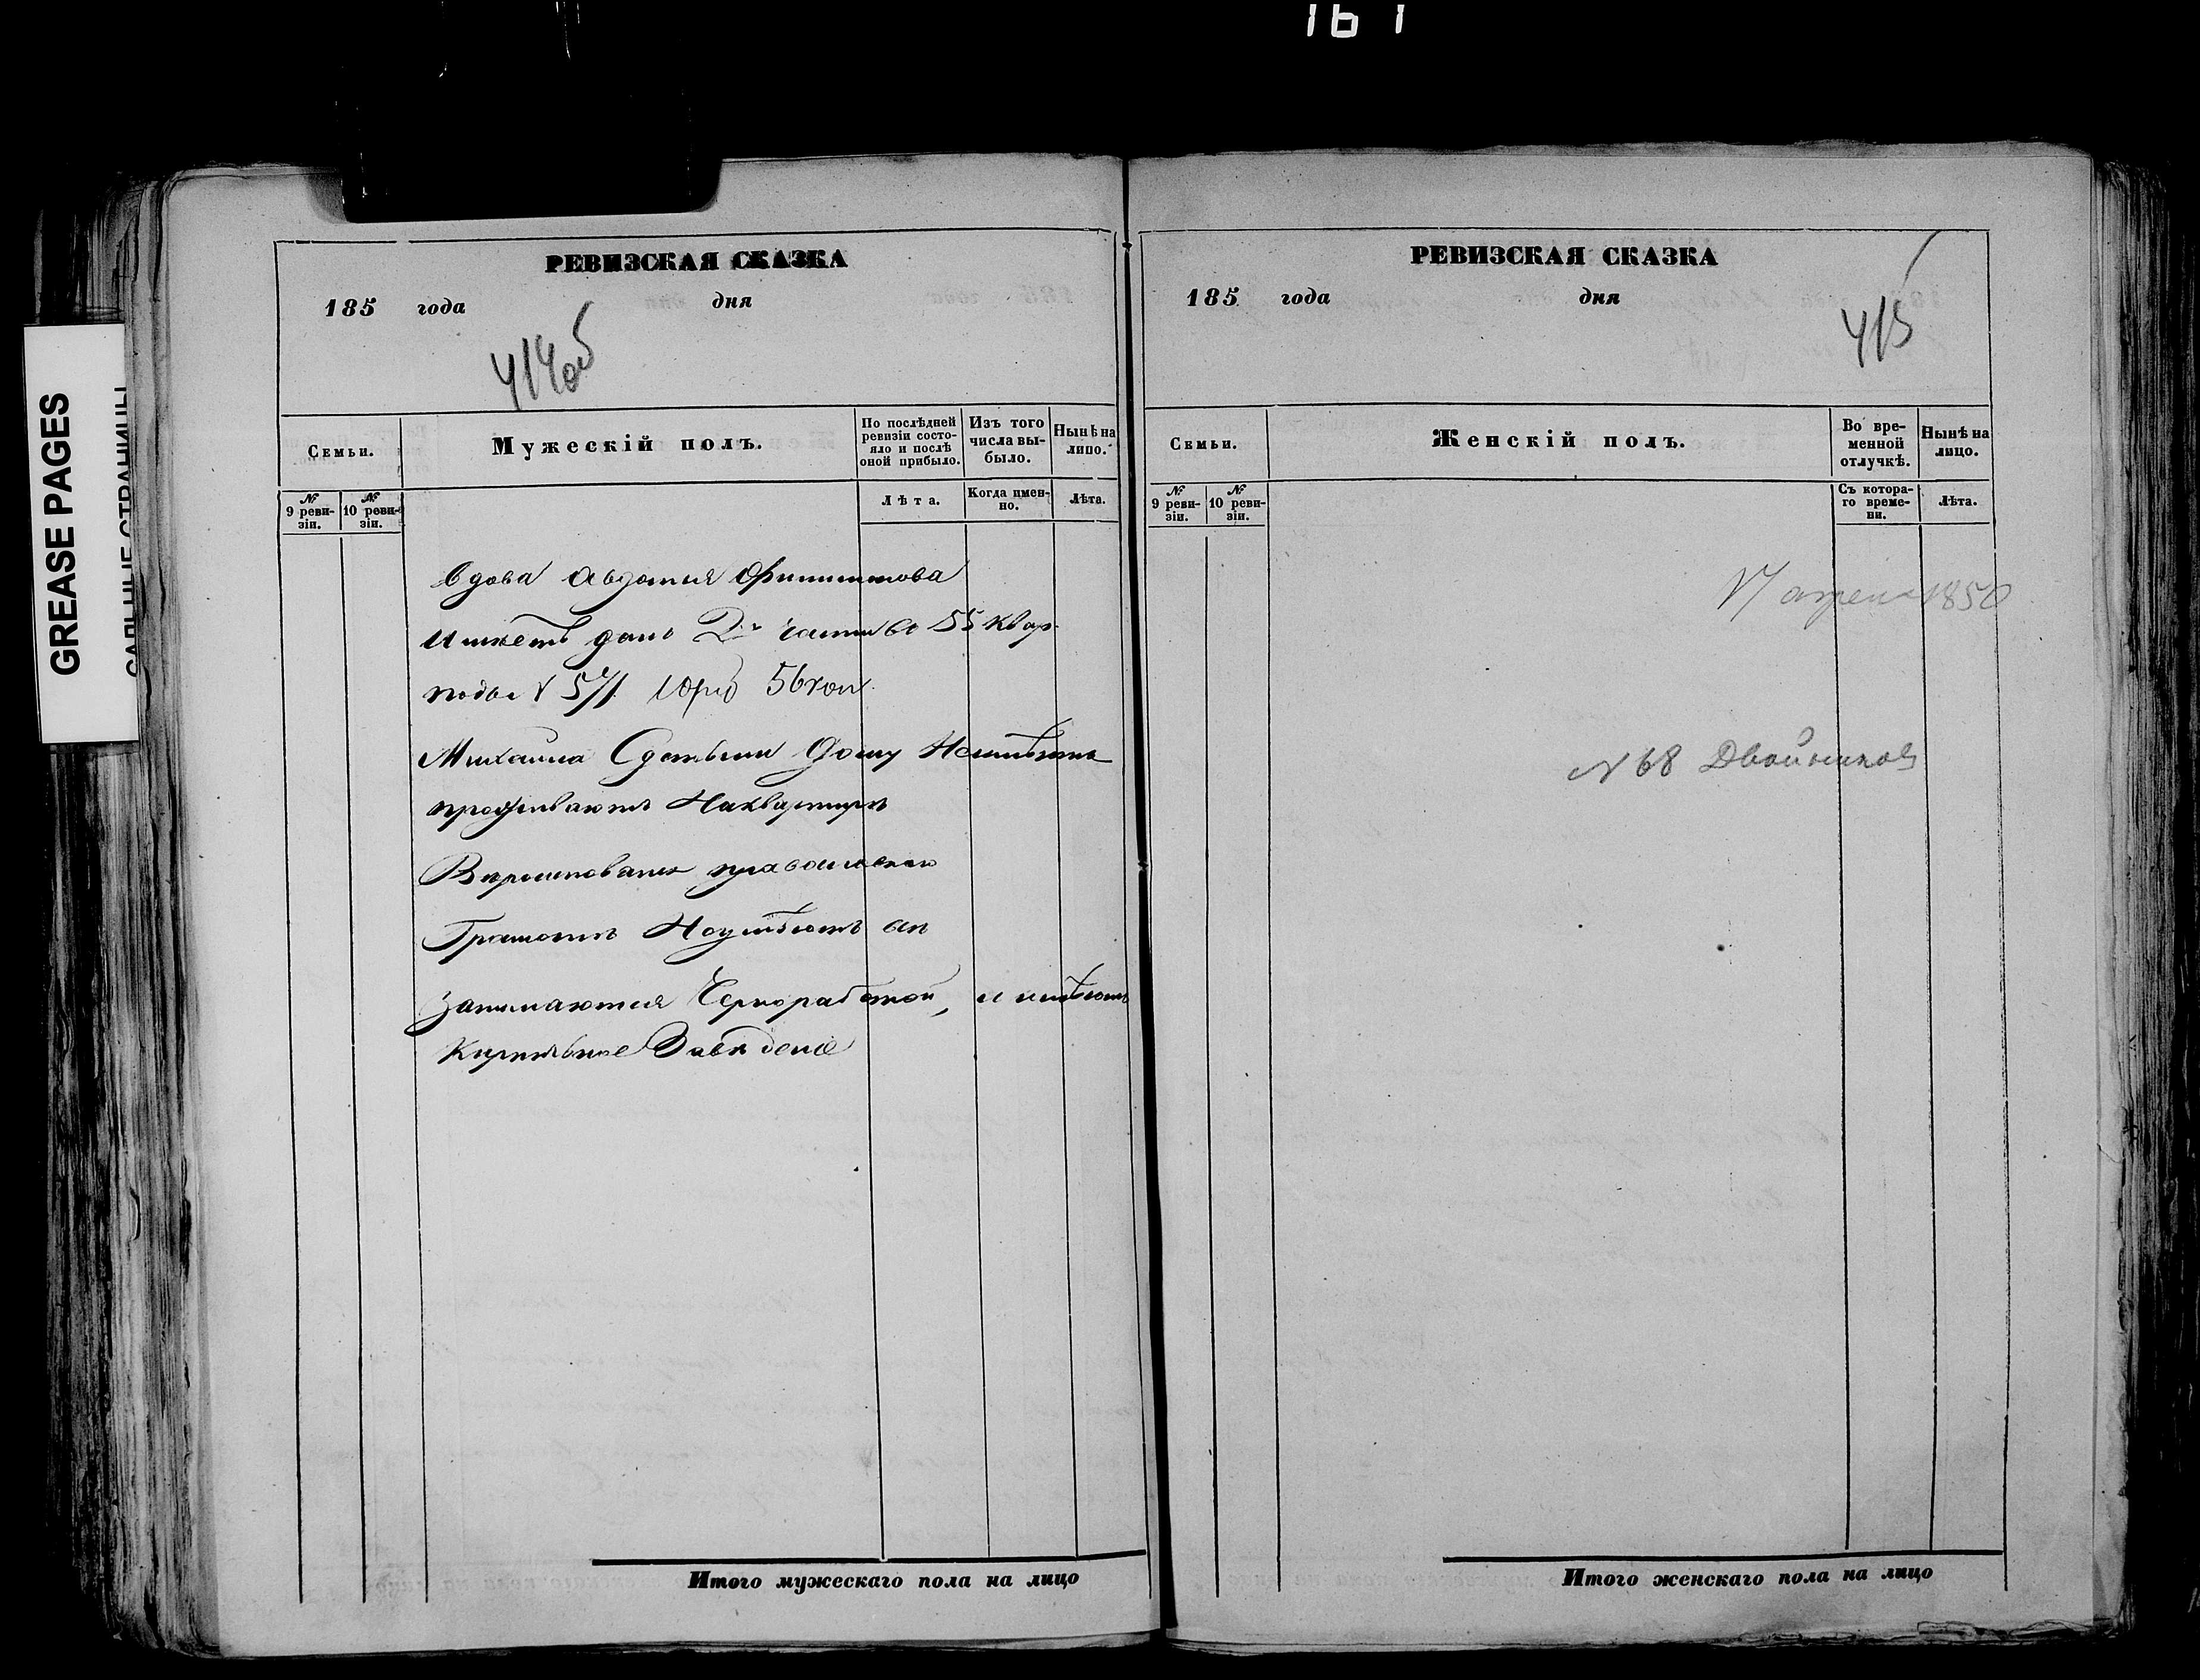 161
GREASE PAGES
РЕВИЗСКАЯ СКАЗКА
185 года дня
414об
Семьи.
Мужескій полъ.
По послѣдней ревизіи состо-
яло и послѣ оной прибыло.
Изъ того числа вы-
было.
Нынѣ на лицо.
№ 9 реви-
зіи.
№ 10 реви-
зіи.
Лѣта.
Когда имен-
но.
Лѣта.
Вдова Авдотья Филиппова
имѣетъ домъ 2й части во 55 квар.
подъ N 571 10 руб 56 коп.
Михаила Сдѣтьми Дому Неимѣютъ
проживаютъ Наквартирѣ
Грамотѣ Неумѣютъ
Занимаются Чернаработой, и имѣютъ
Кирпичное Заведеніе
Итого мужескаго пола на лицо
РЕВИЗСКАЯ СКАЗКА
185 года дня
415
Семьи.
Женскій полъ.
Во вре-
менной
отлучкѣ.
Нынѣ на
лицо.
№ 9 реви-
зіи.
№ 10 реви-
зіи.
Съ котора-
го време-
ни.
Лѣта.
апреля 1850
N 68 Двойников
Итого женскаго пола на лицо